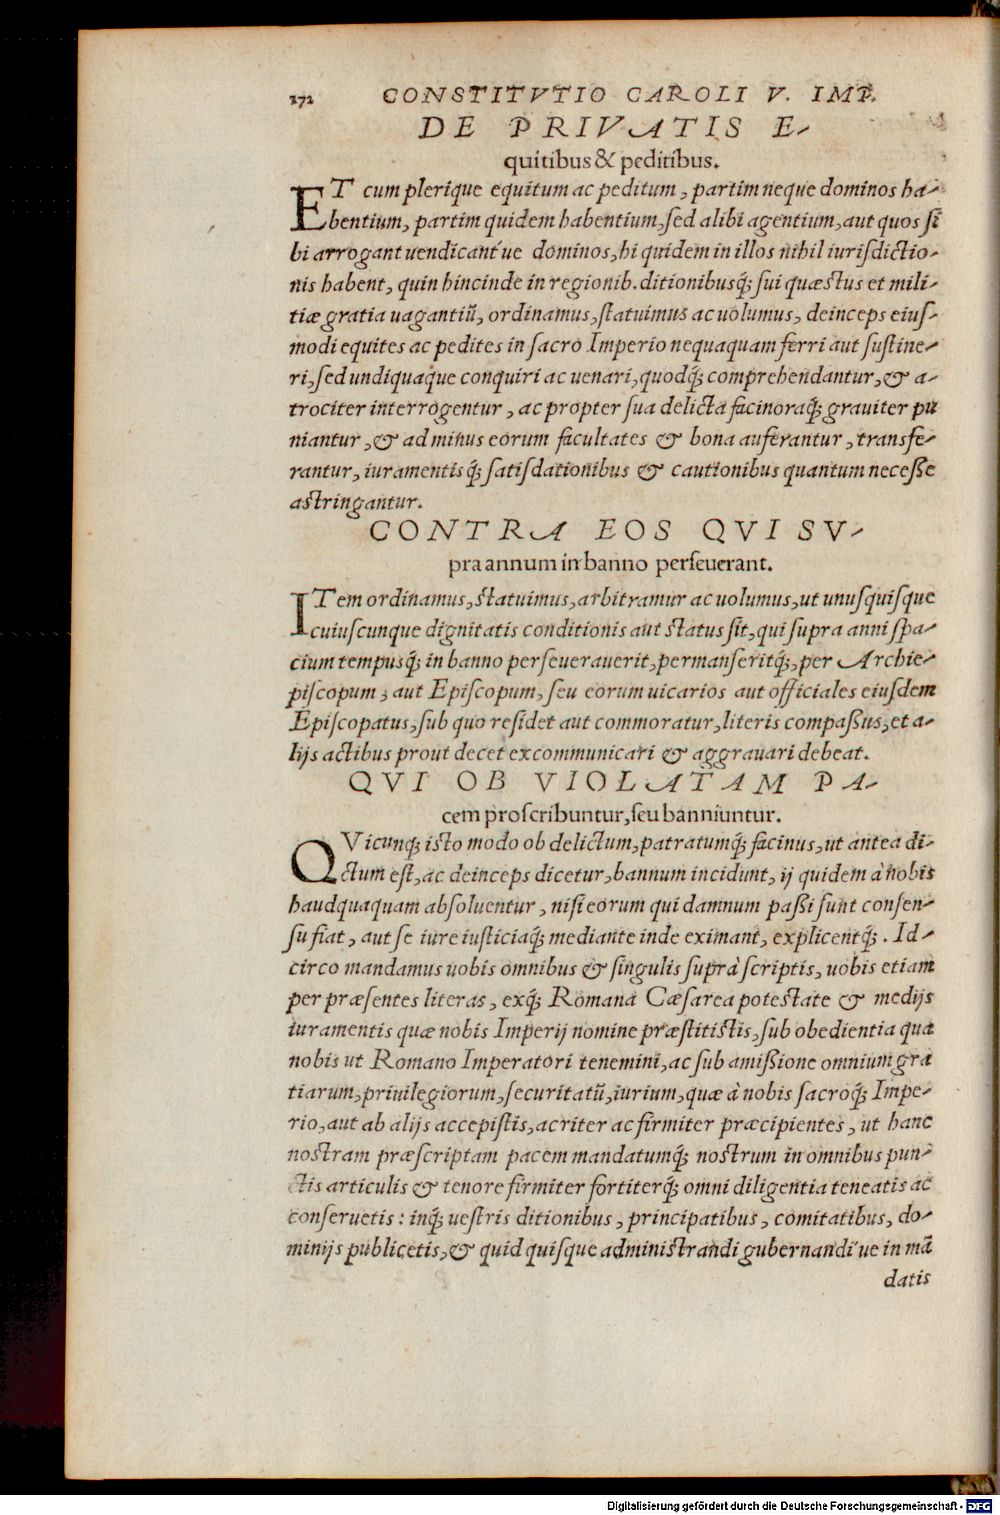 172 CONSTITVTIO CAROLI V. IMP.
DE PRIVATIS E-
quitibus & peditibus.
ET cum plerique equitum ac peditum, partim neque dominos ha-
bentium, partim quidem habentium, sed alibi agentium, aut quos si
bi arrogant uendicant'ue dominos, hi quidem in illos nihil iurisdictio-
nis habent, quin hincinde in regionib. ditionibusq́; sui quæstus et mili-
tiæ gratia uagantiũ, ordinamus, statuimus ac uolumus, deinceps eius-
modi equites ac pedites in sacro Imperio nequaquam ferri aut sustine-
ri, sed undiquaque conquiri ac uenari, quodq́; comprehendantur, & a-
trociter interrogentur, ac propter sua delicta facinoraq́; grauiter pu
niantur, & ad minus eorum facultates & bona auferantur, transfe-
rantur, iuramentis q́; satisdationibus & cautionibus quantum necesse
astringantur.
CONTRA EOS QVI SV-
pra annum in banno perseuerant.
ITem ordinamus, statuimus, arbitramur ac uolumus, ut unusquisque
cuiuscunque dignitatis conditionis aut status sit, qui supra anni spa-
cium tempusq́; in banno perseuerauerit, permanseritq́;, per Archie-
piscopum, aut Episcopum, seu eorum uicarios aut officiales eiusdem
Episcopatus, sub quo residet aut commoratur, literis compaßus, et a-
lijs actibus prout decet excommunicari & aggrauari debeat.
QVI OB VIOLATAM PA-
cem proscribuntur, seu banniuntur.
QVicunq́; isto modo ob delictum, patratumq́; facinus, ut antea di-
ctum est, ac deinceps dicetur, bannum incidunt, ij quidem à nobis
haudquaquam absoluentur, nisi eorum qui damnum paßi sunt consen-
su fiat, aut se iure iusticiaq́; mediante inde eximant, explicentq́;. Id-
circo mandamus uobis omnibus & singulis suprà scriptis, uobis etiam
per præsentes literas, exq́; Romana Cæsarea potestate & medijs
iuramentis quæ nobis Imperij nomine præstitistis, sub obedientia qua
nobis ut Romano Imperatori tenemini, ac sub amißione omnium gra
tiarum, priuilegiorum, securitatũ, iurium, quæ à nobis sacroq́; Impe-
rio, aut ab alijs accepistis, acriter ac firmiter præcipientes, ut hanc
nostram præscriptam pacem mandatumq́; nostrum in omnibus pun-
ctis articulis & tenore firmiter fortiterq́; omni diligentia teneatis ac
conseruetis: inq́; uestris ditionibus, principatibus, comitatibus, do-
minijs publicetis, & quid quisque administrandi gubernandi'ue in mã
datis
Digitalisierung gefördert durch die Deutsche Forschungsgemeinschaft - DFG